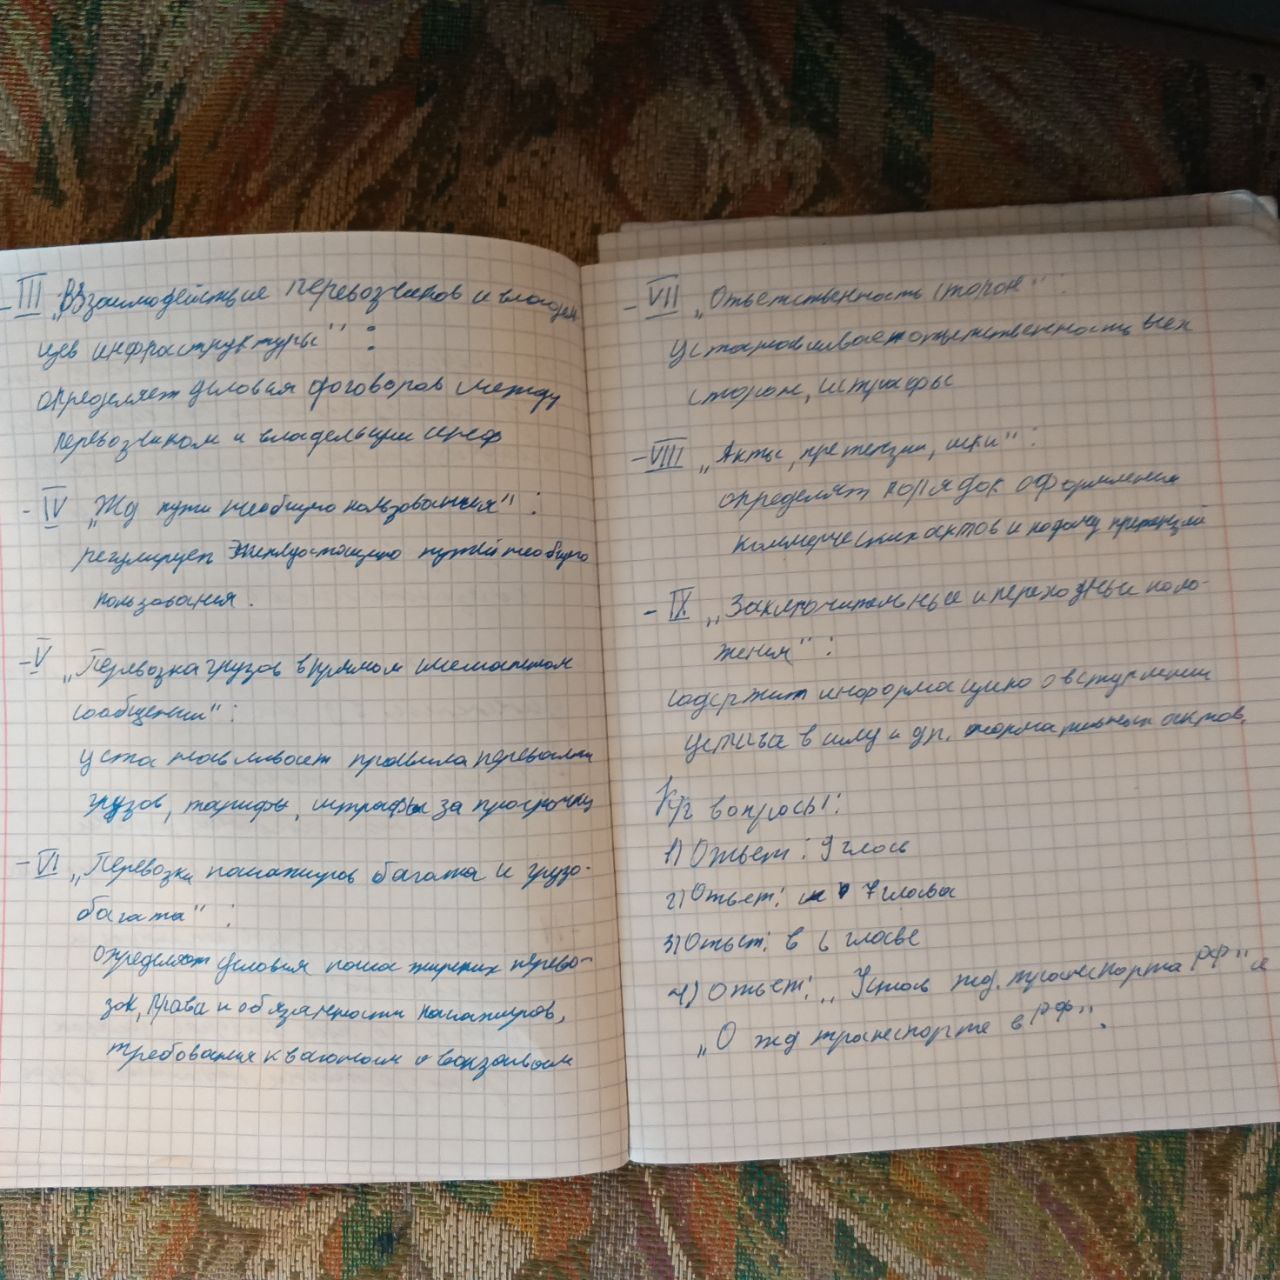 - III „Взаимодействие перевозчиков и владель
цев инфраструктуры" :
определяет условия договоров между
перевозчиком и владельцем инф
- IV „Жд пути необщего пользования" :
регулирует эксплуатацию путей необщего
пользования.
- V „Перевозка грузов в прямом смешанном
сообщении" :
устанавливает правила перевалки
грузов, тарифы, штрафы за просрочку
- VI „Перевозки пассажиров багажа и грузо-
багажа" :
определяет условия пассажирских перево-
зок, права и обязанности пассажиров,
требования к вагонам и вокзалам
- VII „Ответственность сторон" :
устанавливает ответственность всех
сторон, штрафы
- VIII „Акты, претензии, иски" :
определят порядок оформления
коммерческих актов и подачу претензий
- IX „Заключительные и переходные поло-
жения" :
содержит информацию о вступлении
устава в силу и др. нормативных актов.
К/г вопросы:
1) Ответ: 9 глав
2) Ответ: 7 глава
3) Ответ: в 6 главе
4) Ответ: „Устав жд. транспорта РФ" и
„О жд транспорте в РФ".